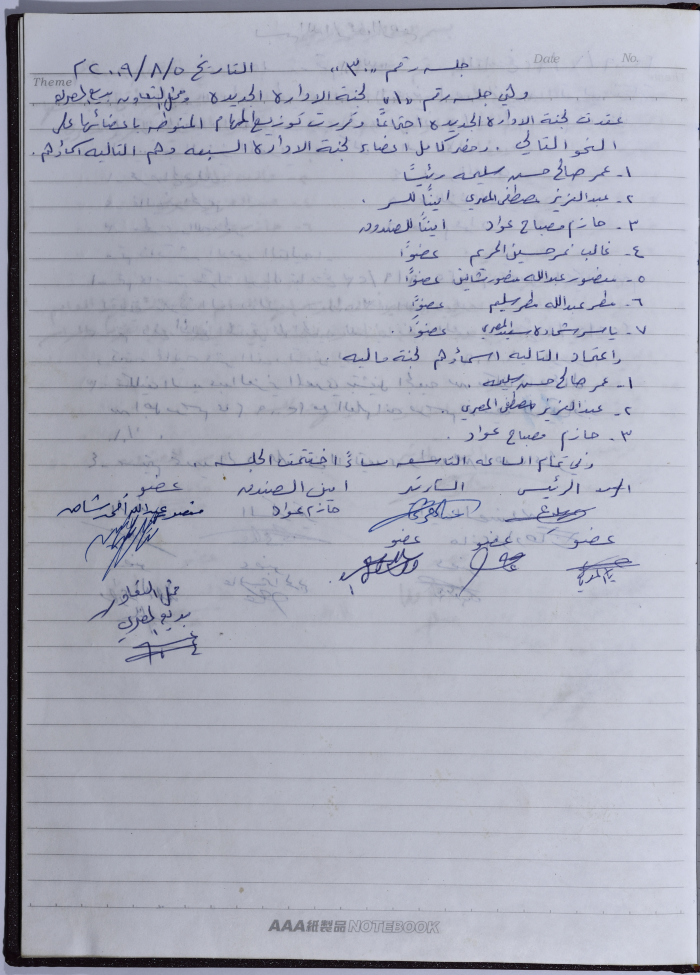 No.
Date
Theme
جلسة رقم "٣" التاريخ ٢٠٠٩/٨/٥ م
وفي جلسة رقم "١" لجنة الادارة الجديدة وممثل التعاون بديع المصري
عقدت لجنة الادارة الجديدة اجتماعاً وتقررت توزيع المهام المنوطه باعضائها على
النحو التالي . وحضر كامل اعضاء لجنة الادارة السبعه وهم التاليه اسماؤهم .
١- عمر صالح حسن سليمه رئيساً
٢- عبدالعزيز مصطفى المصري اميناً للسر .
٣- حازم مصباح عواد اميناً للصندوق
٤- غالب نمر حسين عضواً
٥- منصور عبدالله منصور عضواً
٦- مطر عبدالله مطر سليم عضواً
٧- ياسر شحادة سعيد المصري عضواً .
واعتماد التاليه اسماؤهم لجنة ماليه .
١- عمر صالح حسن سليمه
٢- عبدالعزيز مصطفى المصري .
٣- حازم مصباح عواد .
وفي تمام الساعه التاسعه مساءً اختتمت الجلسه .
الرئيس السكرتير امين الصندوق عضو
حازم عواد منصور عبدالله
عضو عضو عضو
ممثل التعاون
بديع المصري
AAA紙製品 NOTEBOOK